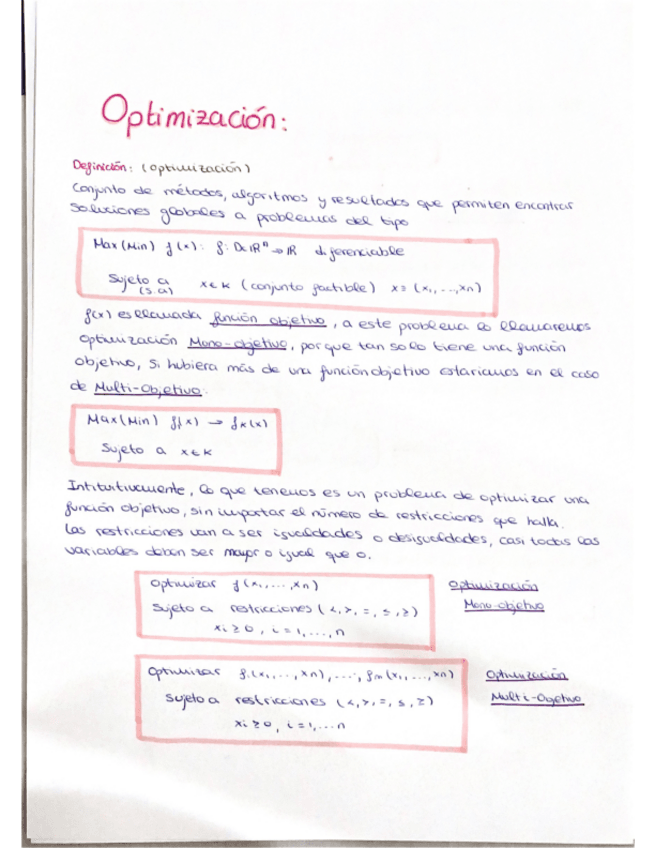 Optimización:
Definición: (optimización)
Conjunto de métodos, algoritmos y resultados que permiten encontrar
soluciones globales a problemas del tipo
Max(Min) f(x): f: D⊂ℝⁿ → ℝ diferenciable
Sujeto a x∈K (conjunto factible) x=(x₁,...,xn)
(s.a)
f(x) es llamada función objetivo, a este problema lo llamaremos
optimización Mono-objetivo, porque tan solo tiene una función
objetivo, si hubiera más de una función objetivo estaríamos en el caso
de Multi-Objetivo.
Max(Min) f₁(x) → fk(x)
Sujeto a x∈K
Intituitivamente, lo que tenemos es un problema de optimizar una
función objetivo, sin importar el número de restricciones que halla.
Las restricciones van a ser igualdades o desigualdades, casi todas las
variables deben ser mayor o igual que 0.
Optimizar f(x₁,...,xn) Optimización
Sujeto a restricciones (<,>,=,≤,≥) Mono-objetivo
xi≥0, i=1,...,n
Optimizar f₁(x₁,...,xn),...,fm(x₁,...,xn) Optimización
Sujeto a restricciones (<,>,=,≤,≥) Multi-Objetivo
xi≥0, i=1,...n